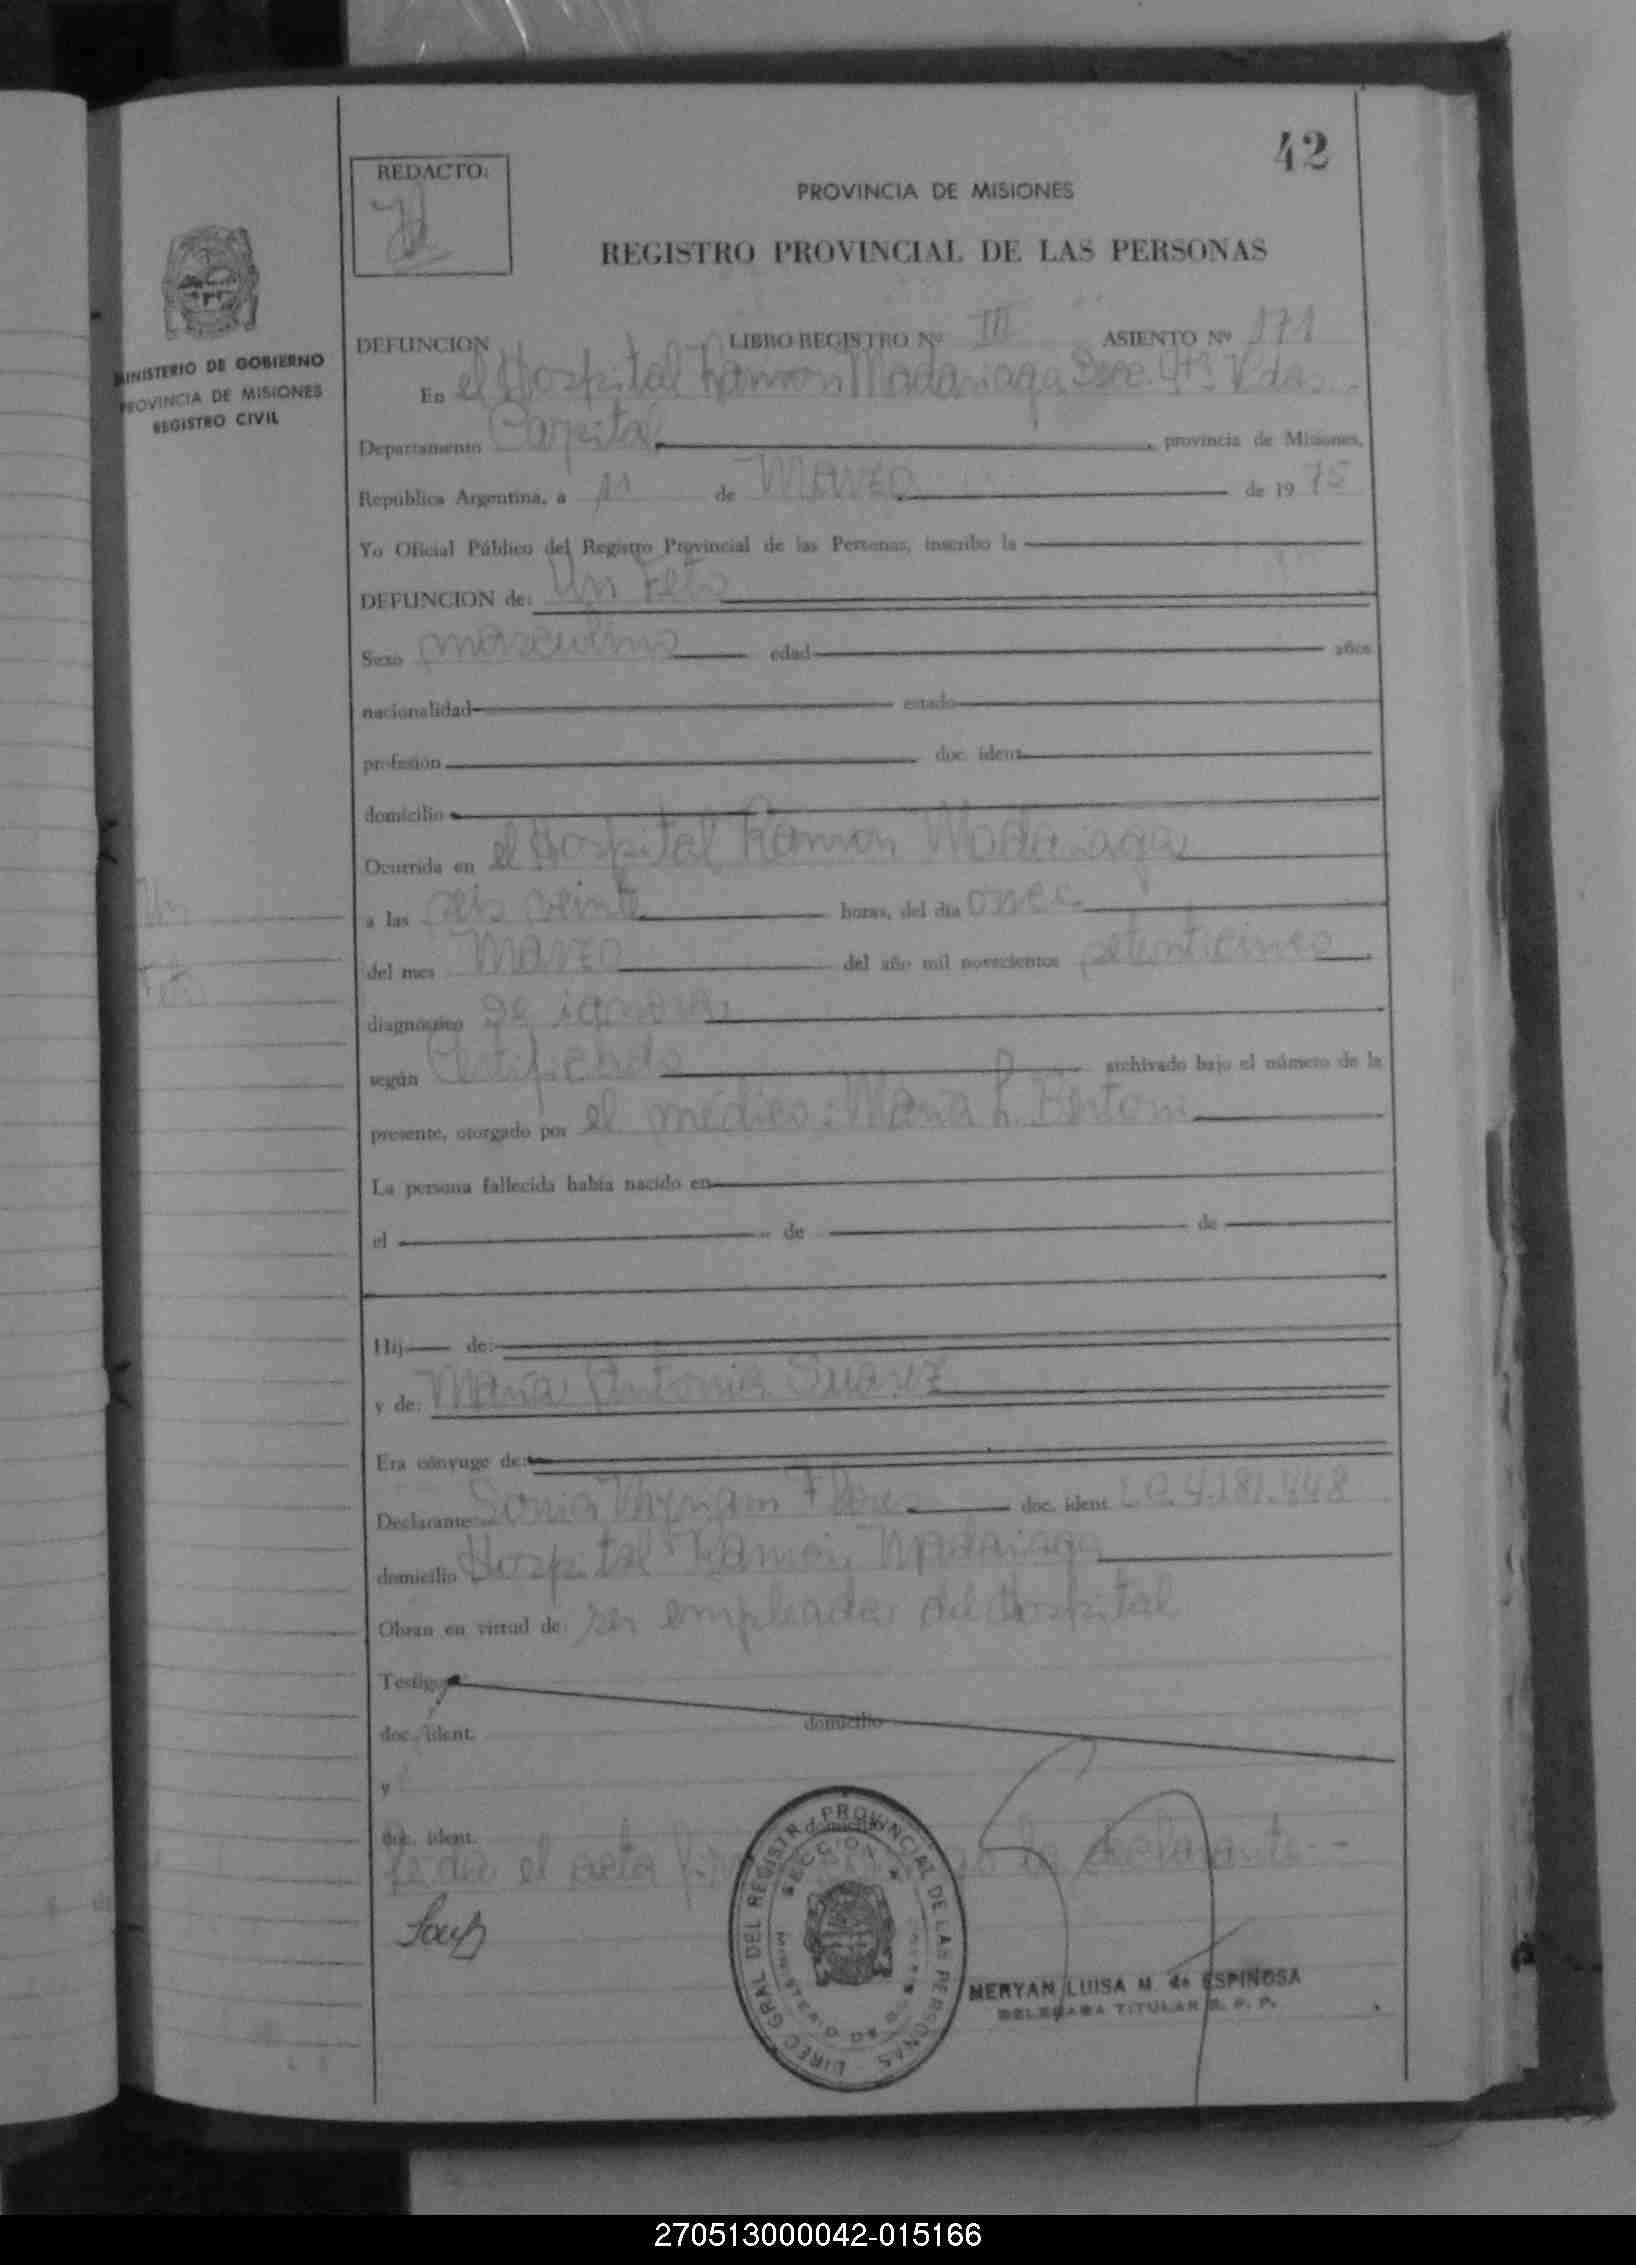 42
REDACTO:
PROVINCIA DE MISIONES
REGISTRO PROVINCIAL DE LAS PERSONAS
MINISTERIO DE GOBIERNO
PROVINCIA DE MISIONES
REGISTRO CIVIL
DEFUNCION LIBRO REGISTRO Nº III ASIENTO Nº 171
En el Hospital Ramon Madariaga Secc. 4ta Pdas.
Departamento Capital provincia de Misiones,
República Argentina, a 11 de Marzo de 1975
Yo Oficial Público del Registro Provincial de las Personas, inscribo la
DEFUNCION de: Un Feto
Sexo masculino edad años
nacionalidad estado
profesión doc. ident.
domicilio
Ocurrida en el Hospital Ramon Madariaga
Un
a las seis veinte horas, del día once
Feto
del mes Marzo del año mil novecientos setenticinco
diagnóstico se ignora
según Certificado archivado bajo el número de la
presente, otorgado por el médico: Maria L. Bertoni
La persona fallecida había nacido en
el de de
Hij de:
y de: Maria Antonia Suarez
Era cónyuge de:
Declarante: Sonia Myriam Flores doc. ident. L.C. 4.181.448
domicilio Hospital Ramon Madariaga
Obran en virtud de: ser empleada del Hospital
Testigo
doc. ident. domicilio
y
doc. ident. domicilio
Leida el acta la declarante.-
DIREC GRAL DEL REGISTRO PROVINCIAL DE LAS PERSONAS
SECCION
MERYAN LUISA M. de ESPINOSA
DELEGADA TITULAR R. P. P.
270513000042-015166